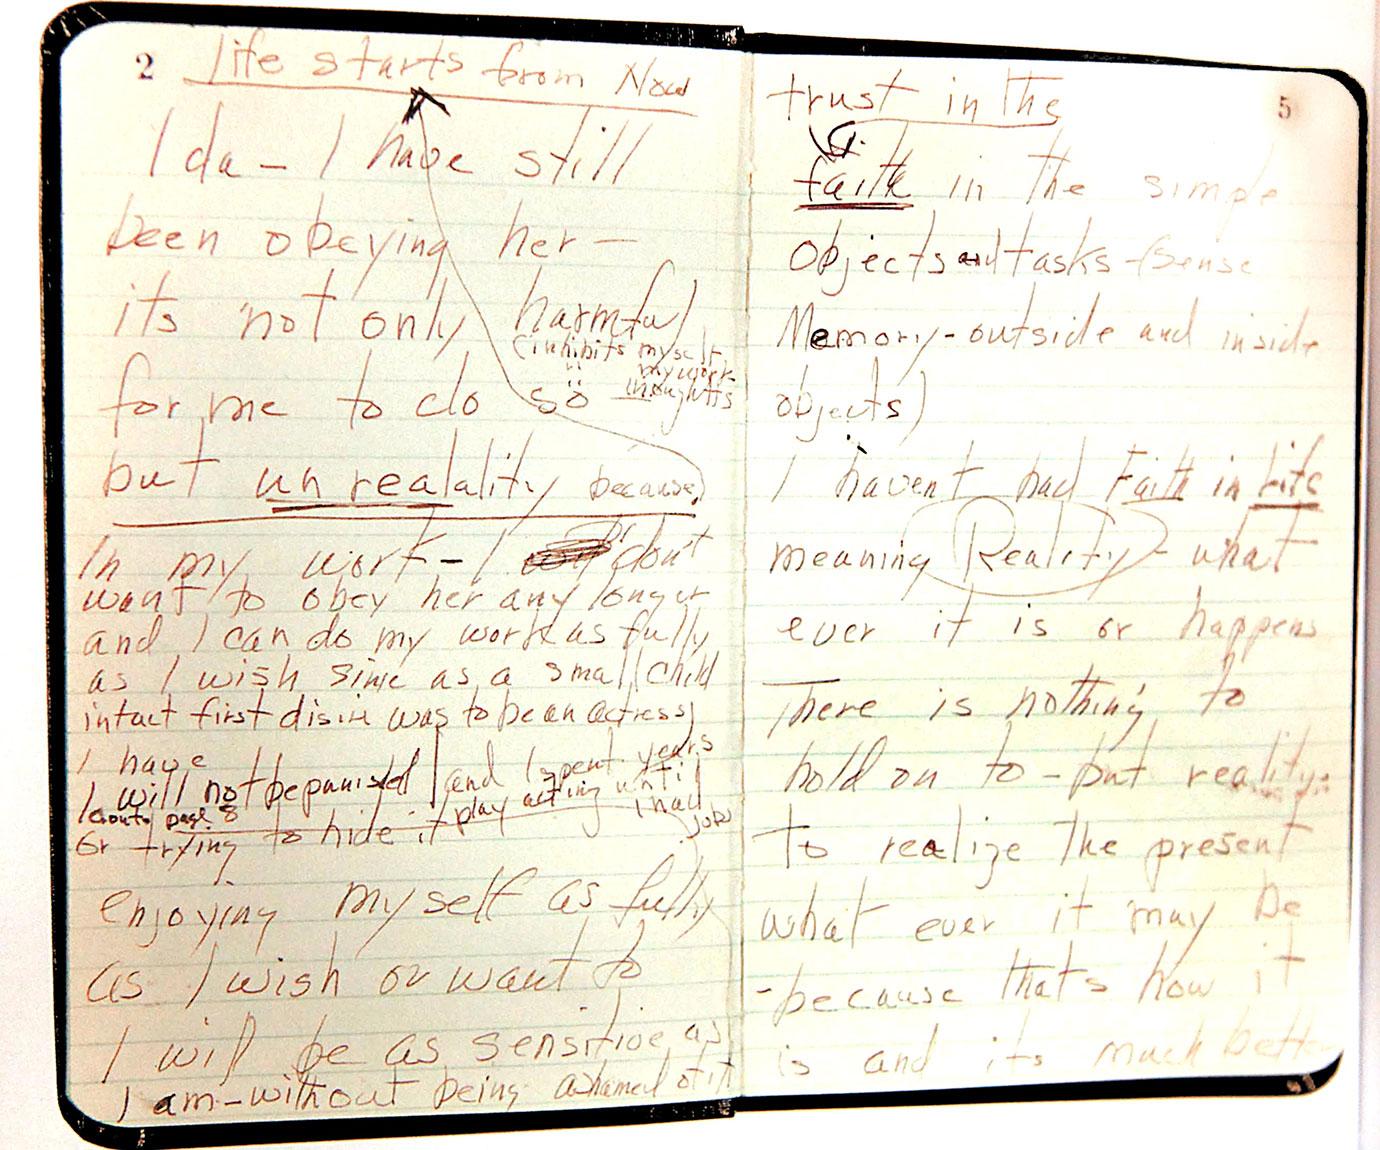 2 life starts from Now
Ida – I have still
been obeying her –
its not only harmful
(inhibits myself,
my work
thoughts
for me to do so
but unrealality because
In my work – I don't
want to obey her any longer
and I can do my work as fully
as I wish since as a small child
intact first disire was to be an actress
I have and I spent years
I will not be punished play acting until
page 8 I had
or trying to hide it jobs
enjoying myself as fully
as I wish or want to
I will be as sensitive as
I am – without being ashamed of it
5
trust in the
faith in the simple
objects and tasks – (Sense
Memory – outside and inside
objects)
I havent had Faith in Life
meaning Reality – what
ever it is or happens
There is nothing to
hold on to – but reality
to realize the present
what ever it may be
– because thats how it
is and its much better